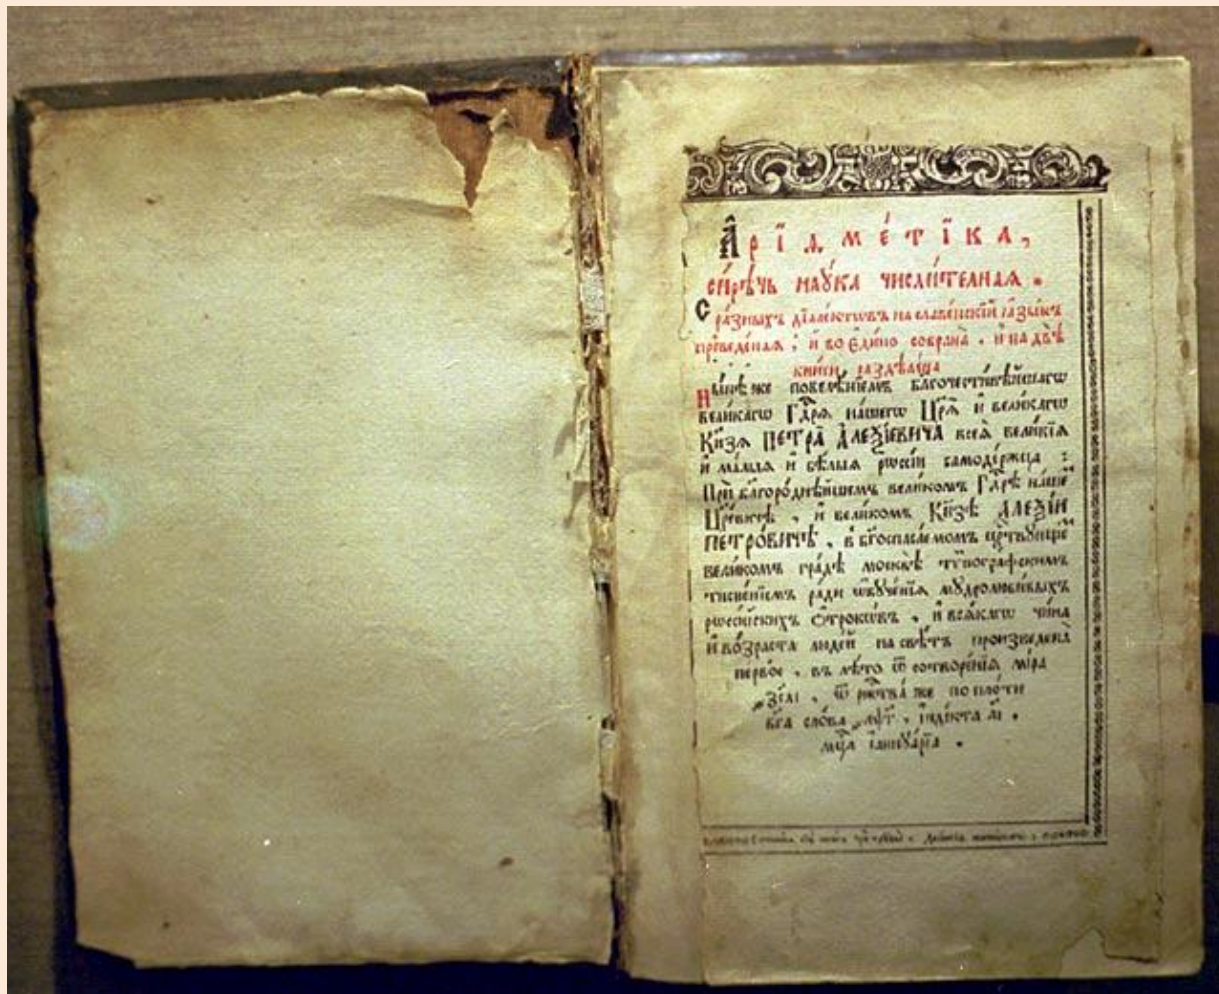 А҆рїѳме́тїка,
си́рѣчь наꙋ́ка числи́телнаѧ.
С̾ ра́зныхъ дїале́ктѡвъ на славе́нскїй ꙗ҆зы́къ
преведе́наѧ, и҆ во є҆ди́но собрана̀, и҆ на двѣ̀
кни̑ги раздѣлена̀
Ны́нѣ же повелѣ́нїемъ благочести́вѣйшагѡ
вели́кагѡ Гдⷭ҇рѧ на́шегѡ Цр҃ѧ̀ и҆ вели́кагѡ
Кн҃зѧ ПЕТРА̀ А҆ЛЕѮІ́ЕВИЧА всеѧ̀ вели́кїѧ
и҆ ма́лыѧ и҆ бѣ́лыѧ рѡссі́и самоде́ржца:
Прѝ благоро́днѣйшемъ вели́комъ Гдⷭ҇рѣ на́шемъ
Цр҃е́вичѣ, и҆ вели́комъ Кн҃зѣ А҆ЛЕѮІ́И
ПЕТРО́ВИЧѣ, в̾ бг҃оспаса́емомъ црⷭ҇твꙋющемъ
вели́комъ гра́дѣ москвѣ̀ тѷпогра́фскимъ
тисне́нїемъ ра́ди ѡ҆бꙋче́нїѧ мꙋдролюби́выхъ
рѡссі́йскихъ ѻ҆́трокѡвъ, и҆ всѧ́кагѡ чи́на
и҆ во́зраста люде́й на свѣ́тъ произведена̀
пе́рвое, въ лѣ́то ѿ сотворе́нїѧ мі́ра
҂зс҃аі, ѿ ржⷭ҇тва́ же по пло́ти
бг҃а сло́ва ҂аѱ҃г, і҆ндїкта а҃і,
мцⷭ҇а і҆аннꙋа́рїа.